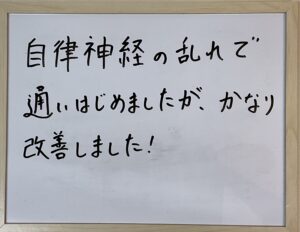 自律神経の乱れで
通いはじめましたが、かなり
改善しました!